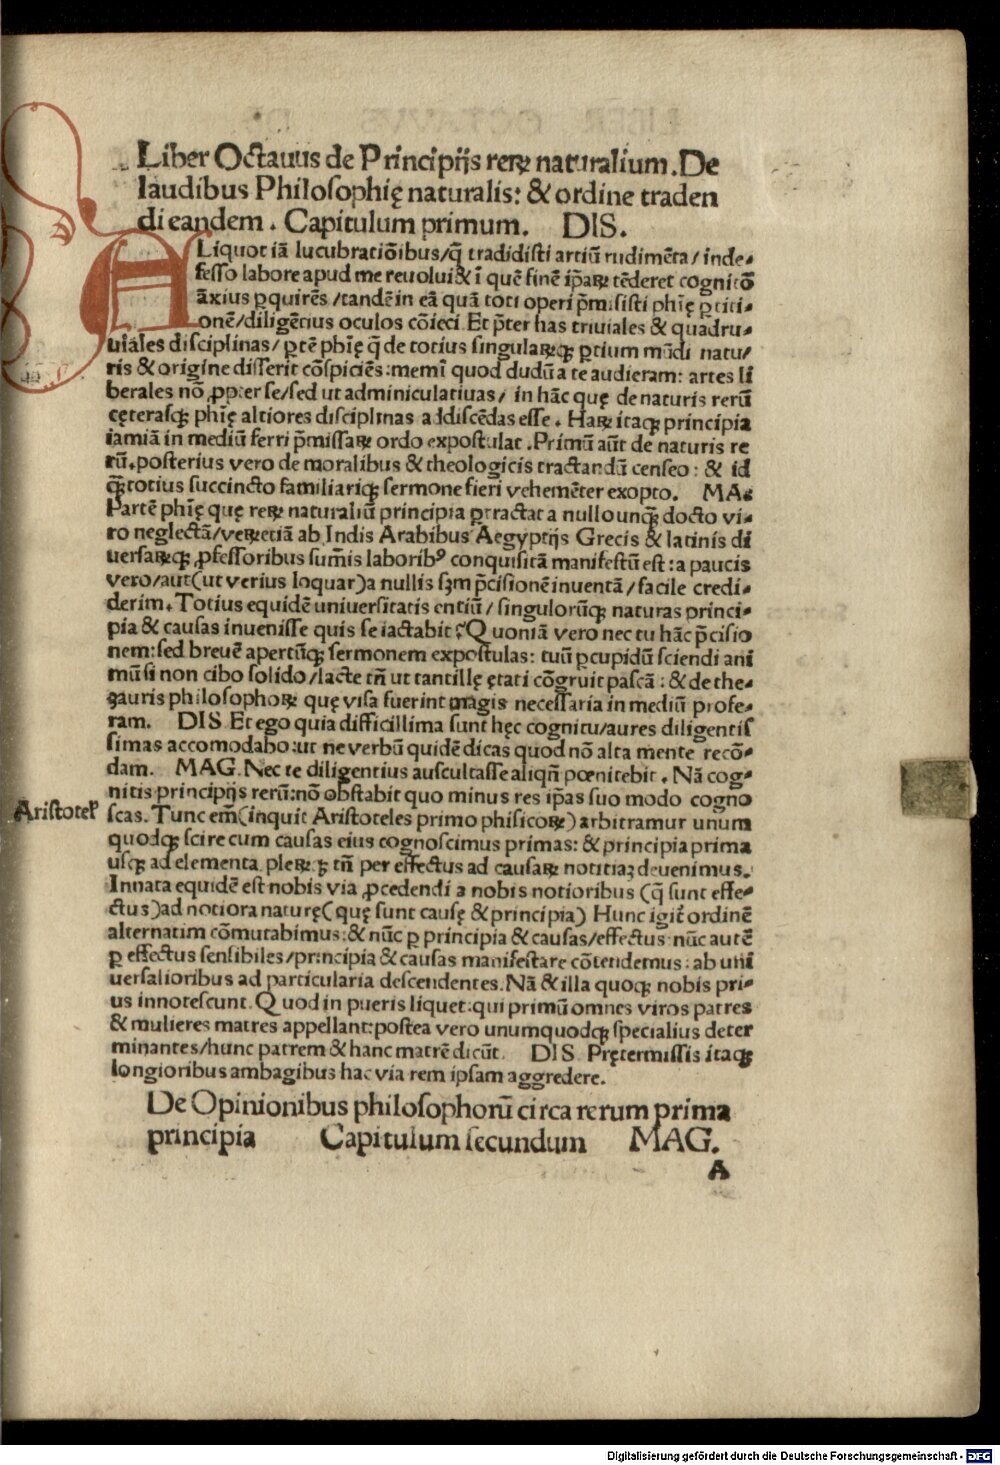 Liber Octauus de Principijs rerꝝ naturalium. De
laudibus Philosophię naturalis: & ordine traden
di eandem. Capitulum primum. DIS.
ALiquot iã lucubratiõibus/q̃ tradidisti artiũ rudimẽta/inde-
fesso labore apud me reuolui & ĩ quẽ finẽ ip̃aꝝ tẽderet cognitõ
ãxius ꝑquirẽs/tandẽ in eã quã toti operi p̃misisti phĩę ꝑtiti-
onẽ/diligẽtius oculos cõieci. Et p̃ter has triuiales & quadru-
uiales disciplinas/ꝑtẽ phĩę q̃ de totius singulaꝝqꝫ ꝑtium mũdi natu/
ris & origine disserit cõspiciẽs: memĩ quod dudũ a te audieram: artes li
berales nõ ꝓpter se/sed ut adminiculatiuas/ in hãc quę de naturis rerũ
cęterasqꝫ phĩę altiores disciplinas addiscẽdas esse. Haꝝ itaqꝫ principia
iamiã in mediũ ferri p̃missaꝝ ordo expostulat. Primũ aũt de naturis re
rũ. posterius vero de moralibus & theologicis tractandũ censeo: & id
qꝫ̃ totius succincto familiariqꝫ sermone fieri vehemẽter exopto. MAG
Partẽ phĩę quę rerꝝ naturaliũ principia ꝑtractat a nullo unqꝫ̃ docto vi-
ro neglectã/veꝝetiã ab Indis Arabibus Aegyptijs Grecis & latinis di
uersaꝝqꝫ ꝓfessoribus sum̃is laboribꝰ conquisitã manifestũ est: a paucis
vero/aut(ut verius loquar)a nullis sꝫm p̃cisionẽ inuentã/facile credi-
derim. Totius equidẽ uniuersitatis entiũ/ singulorũqꝫ naturas princi-
pia & causas inuenisse quis se iactabit? Quoniã vero nec tu hãc p̃cisio
nem: sed breuẽ apertũqꝫ sermonem expostulas: tuũ ꝑcupidũ sciendi ani
mũ si non cibo solido/lacte tñ ut tantillę ętati cõgruit pascã: & de the-
sauris philosophoꝝ quę visa fuerint magis necessaria in mediũ profe-
ram. DIS Et ego quia difficillima sunt hęc cognitu/aures diligentis
simas accomodabo: ut ne verbũ quidẽ dicas quod nõ alta mente recõ-
dam. MAG. Nec te diligentius auscultasse aliqñ pœnitebit. Nã cog-
nitis principijs rerũ: nõ obstabit quo minus res ip̃as suo modo cogno
Aristotel'
scas. Tunc em̃(inquit Aristoteles primo phisicoꝝ) arbitramur unum
quodqꝫ scire cum causas eius cognoscimus primas: & principia prima
usqꝫ ad elementa. pleꝝqꝫ tñ per effectus ad causaꝝ notitiaꝫ deuenimus.
Innata equidẽ est nobis via ꝓcedendi a nobis notioribus (q̃ sunt effe-
ctus)ad notiora naturę(quę sunt causę & principia) Hunc igit̃ ordinẽ
alternatim cõmutabimus: & nũc ꝑ principia & causas/effectus: nũc autẽ
ꝑ effectus sensibiles/principia & causas manifestare cõtendemus: ab uni
uersalioribus ad particularia descendentes. Nã & illa quoqꝫ nobis pri-
us innotescunt. Quod in pueris liquet: qui primũ omnes viros patres
& mulieres matres appellant: postea vero unumquodqꝫ specialius deter
minantes/hunc patrem & hanc matrẽ dicũt. DIS Prętermissis itaqꝫ
longioribus ambagibus hac via rem ipsam aggredere.
De Opinionibus philosophorũ circa rerum prima
principia Capitulum secundum MAG.
A
Digitalisierung gefördert durch die Deutsche Forschungsgemeinschaft - DFG